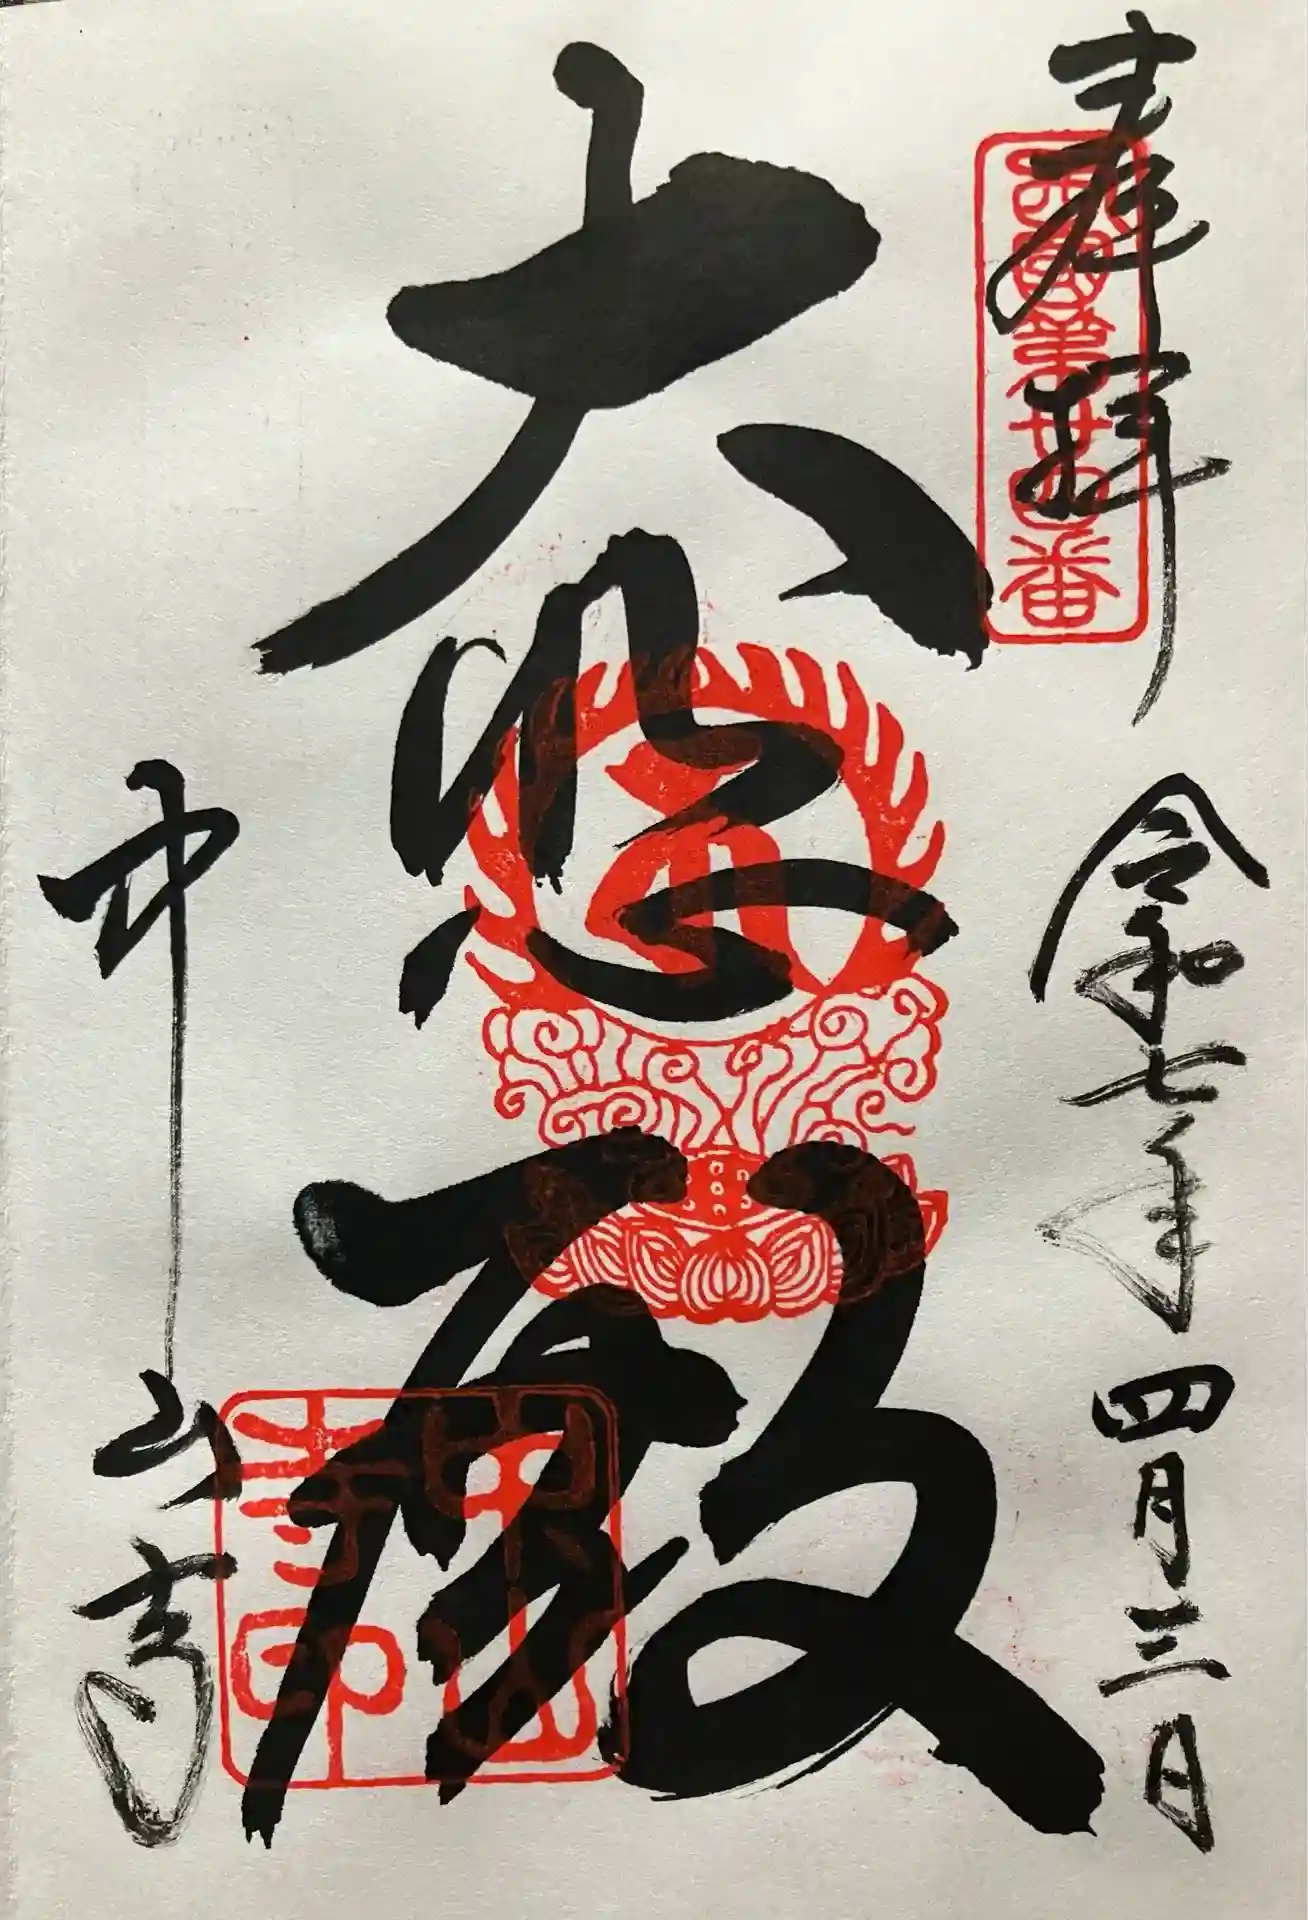 奉拝
西國第廿四番
令和七年四月三日
大悲殿
中山寺
中山
寺印